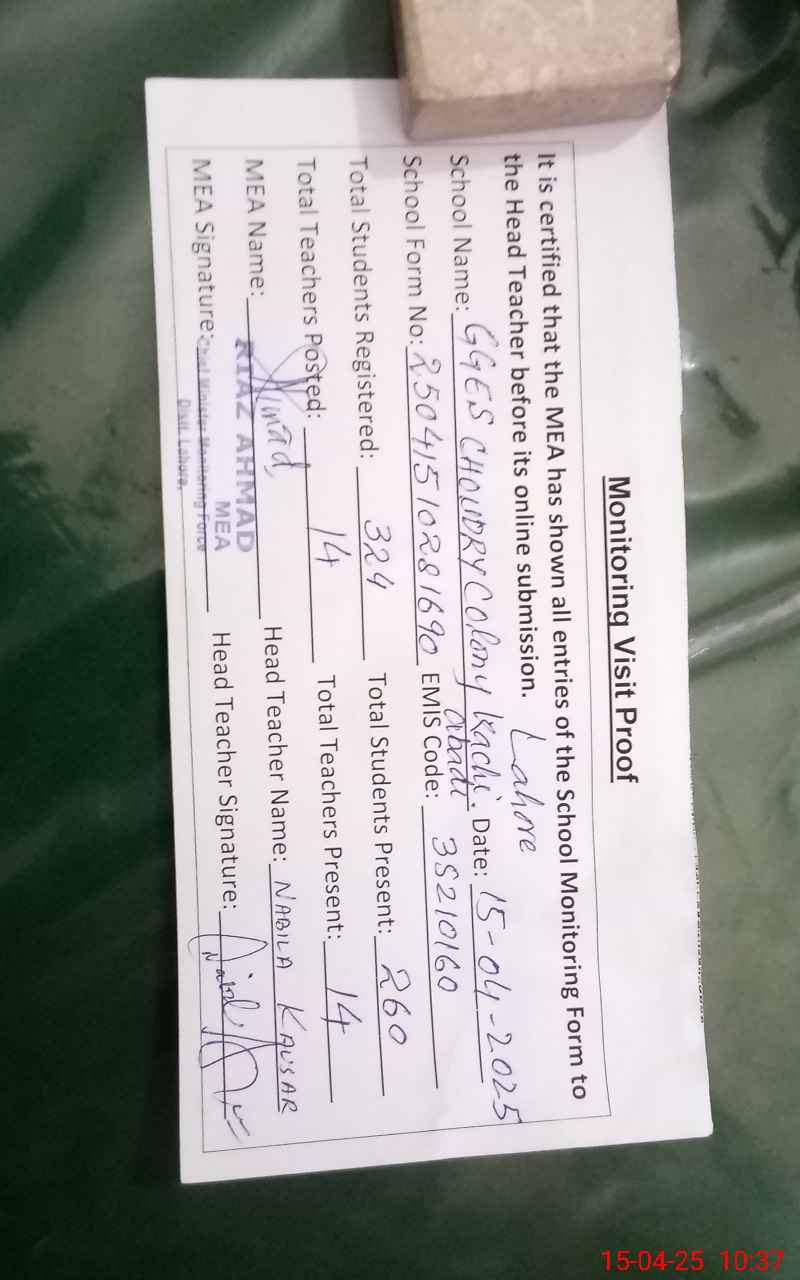 Monitoring Visit Proof
It is certified that the MEA has shown all entries of the School Monitoring Form to
the Head Teacher before its online submission. Lahore
School Name: GGES CHOUDRY Colony Kachi Abadi. Date: 15-04-2025
School Form No: 2504151028 1690 EMIS Code: 35210160
Total Students Registered: 324 Total Students Present: 260
Total Teachers Posted: 14 Total Teachers Present: 14
MEA Name: RIAZ AHMAD Head Teacher Name: NABILA KAUSAR
MEA
MEA Signature: Chief Minister Monitoring Force Head Teacher Signature:
Distt. Lahore.
15-04-25 10:37